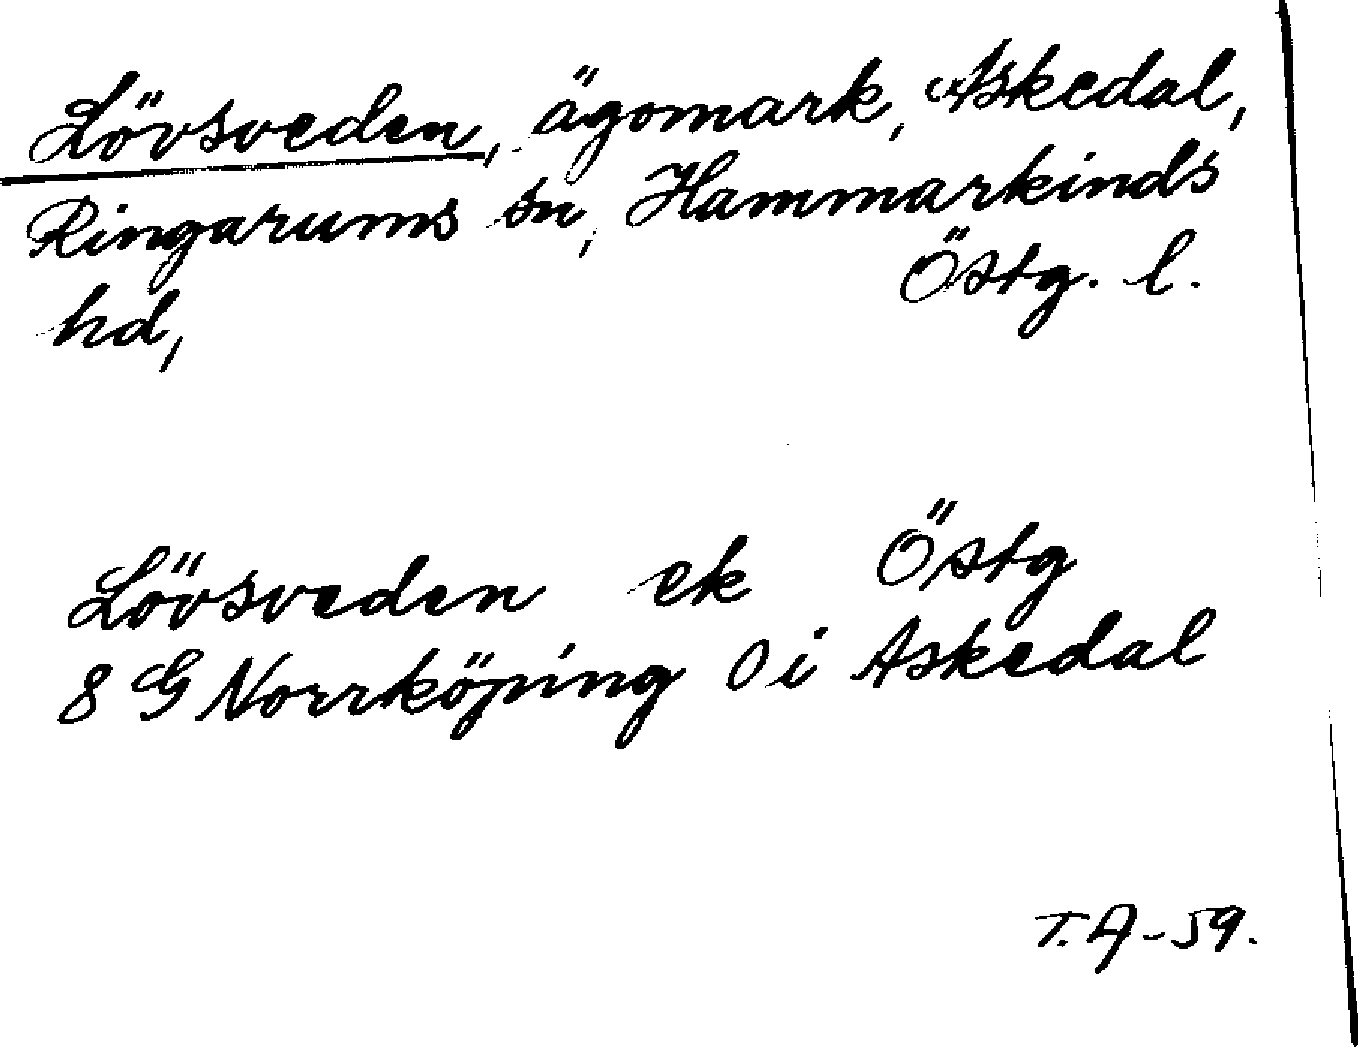 Lövsveden, ägomark, Askedal,
Ringarums sn, Hammarkinds
hd, Östg. l.
Lövsveden ek Östg
8 G Norrköping O i Askedal
T.A-59.